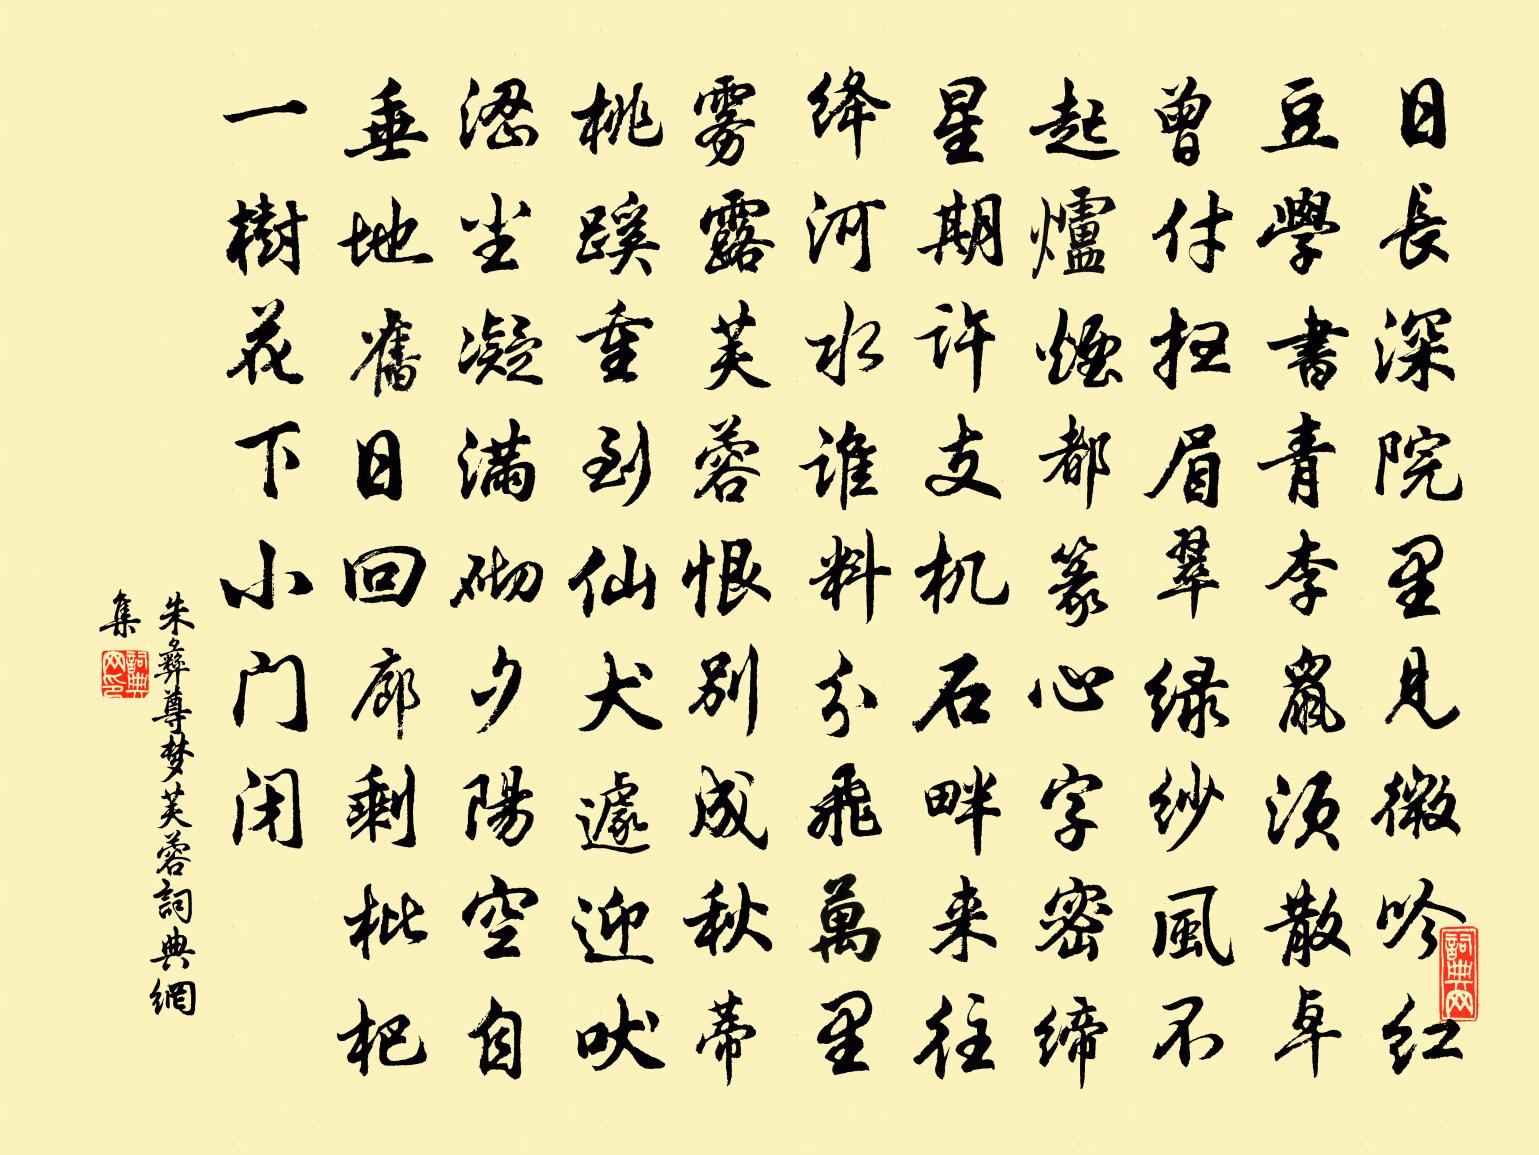 日長深院里見微吟紅
豆學書青李鼠须散卓
曾付扫眉翠绿纱風不
起爐煙都篆心字密缔
星期许支机石畔来往
绛河水谁料分飛萬里
雾露芙蓉恨别成秋蒂
桃蹊重到仙犬遽迎吠
涩尘凝满砌夕陽空自
垂地舊日回廊剩枇杷
一樹花下小门闭
朱彝尊梦芙蓉詞典網
集
詞典网印
詞典网